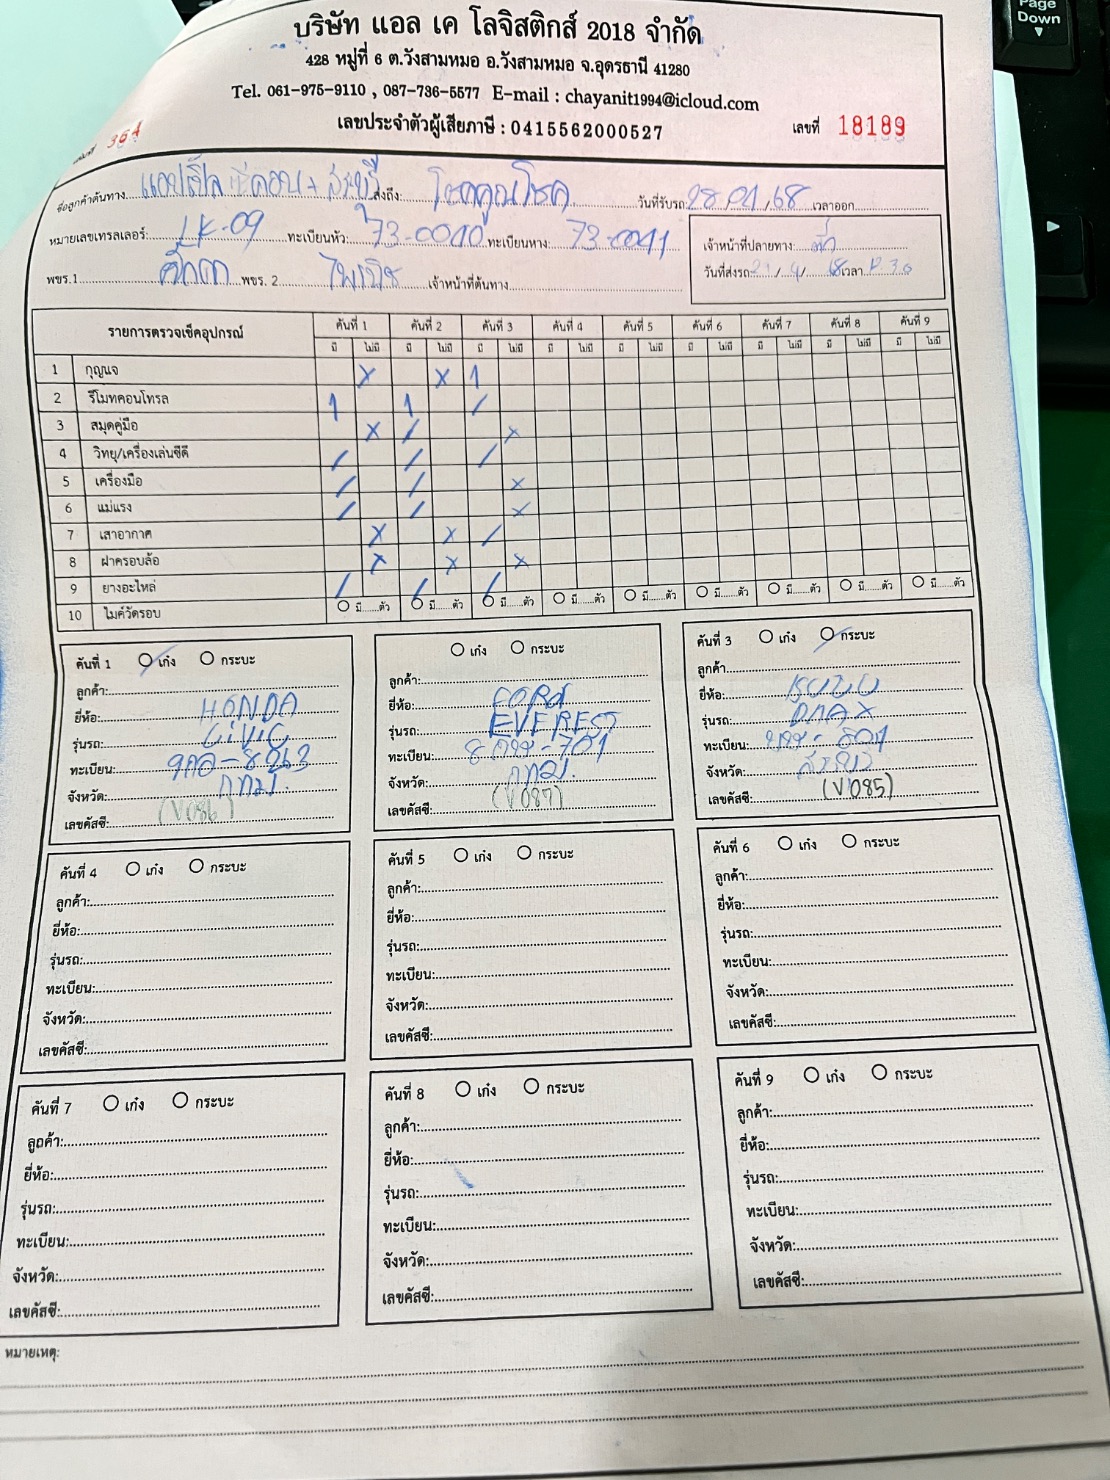 Page
Down
บริษัท แอล เค โลจิสติกส์ 2018 จำกัด
428 หมู่ที่ 6 ต.วังสามหมอ อ.วังสามหมอ จ.อุดรธานี 41280
Tel. 061-975-9110 , 087-736-5577 E-mail : chayanit1994@icloud.com
เลขประจำตัวผู้เสียภาษี : 0415562000527
เลขที่ 18189
364
ชื่อลูกค้าต้นทาง ส่งถึง: โชคคูณโชค วันที่รับรถ 28,04,68 เวลาออก
หมายเลขเทรลเลอร์: LK-09 ทะเบียนหัว: 73-0040 ทะเบียนหาง: 73-0041
เจ้าหน้าที่ปลายทาง:
พขร.1 พขร. 2 เจ้าหน้าที่ต้นทาง:
วันที่ส่งรถ เวลา
รายการตรวจเช็คอุปกรณ์ คันที่ 1 คันที่ 2 คันที่ 3 คันที่ 4 คันที่ 5 คันที่ 6 คันที่ 7 คันที่ 8 คันที่ 9
มี ไม่มี มี ไม่มี มี ไม่มี มี ไม่มี มี ไม่มี มี ไม่มี มี ไม่มี มี ไม่มี มี ไม่มี
1 กุญแจ x x /
2 รีโมทคอนโทรล / / /
3 สมุดคู่มือ x / x
4 วิทยุ/เครื่องเล่นซีดี / / /
5 เครื่องมือ / / x
6 แม่แรง / / x
7 เสาอากาศ x x /
8 ฝาครอบล้อ x x x
9 ยางอะไหล่ / / /
10 ไมค์วัดรอบ มี......ตัว มี......ตัว มี......ตัว มี......ตัว มี......ตัว มี......ตัว มี......ตัว มี......ตัว มี......ตัว
คันที่ 1 เก๋ง กระบะ
ลูกค้า:
ยี่ห้อ: HONDA
รุ่นรถ: CIVIC
ทะเบียน:
จังหวัด: กทม.
เลขคัสซี: (V086)
เก๋ง กระบะ
ลูกค้า:
ยี่ห้อ: FORD
รุ่นรถ: EVEREST
ทะเบียน:
จังหวัด: กทม.
เลขคัสซี: (V087)
คันที่ 3 เก๋ง กระบะ
ลูกค้า
ยี่ห้อ: ISUZU
รุ่นรถ: DMAX
ทะเบียน:
จังหวัด: สระบุรี
เลขคัสซี: (V085)
คันที่ 4 เก๋ง กระบะ
ลูกค้า:
ยี่ห้อ:
รุ่นรถ:
ทะเบียน:
จังหวัด:
เลขคัสซี:
คันที่ 5 เก๋ง กระบะ
ลูกค้า:
ยี่ห้อ:
รุ่นรถ:
ทะเบียน:
จังหวัด:
เลขคัสซี:
คันที่ 6 เก๋ง กระบะ
ลูกค้า:
ยี่ห้อ:
รุ่นรถ:
ทะเบียน:
จังหวัด:
เลขคัสซี:
คันที่ 7 เก๋ง กระบะ
ลูกค้า:
ยี่ห้อ:
รุ่นรถ:
ทะเบียน:
จังหวัด:
เลขคัสซี:
คันที่ 8 เก๋ง กระบะ
ลูกค้า:
ยี่ห้อ:
รุ่นรถ:
ทะเบียน:
จังหวัด:
เลขคัสซี:
คันที่ 9 เก๋ง กระบะ
ลูกค้า:
ยี่ห้อ:
รุ่นรถ:
ทะเบียน:
จังหวัด:
เลขคัสซี:
หมายเหตุ: